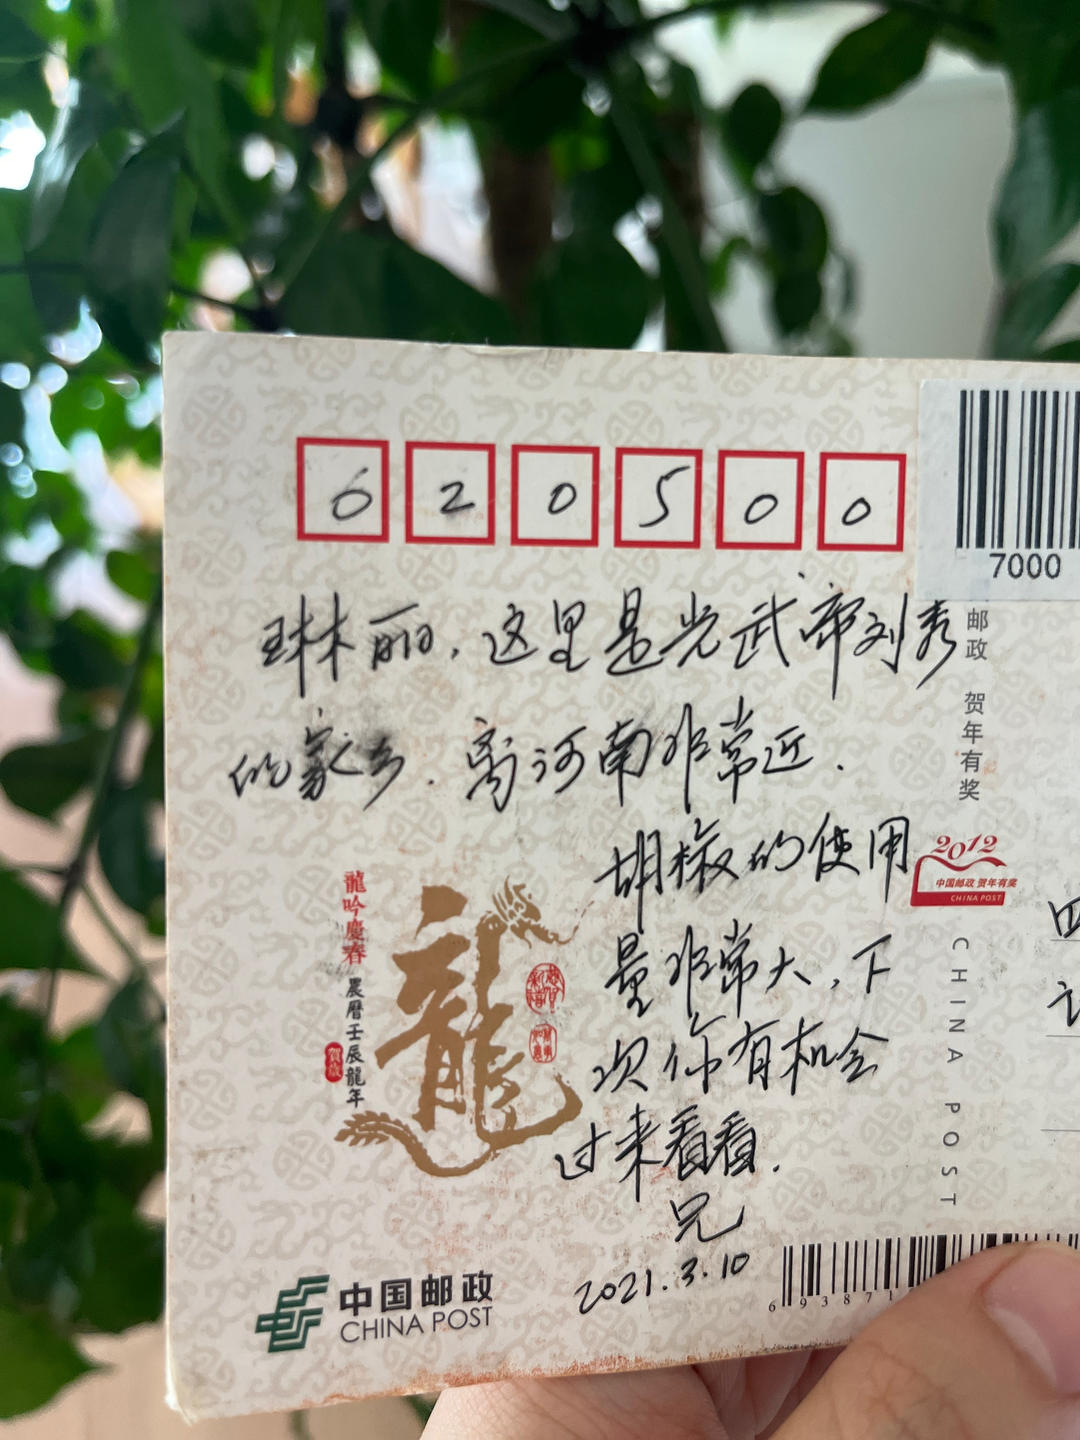 620500
7000
琳丽，这里是光武帝刘秀
的家乡．离河南非常近．
胡椒的使用
量非常大，下
次你有机会
过来看看．
兄
2021.3.10
邮政 贺年有奖
2012
中国邮政 贺年有奖
CHINA POST
CHINA POST
四
龍吟慶春
農曆壬辰龍年
賀歲
龍
中国邮政
CHINA POST
693871